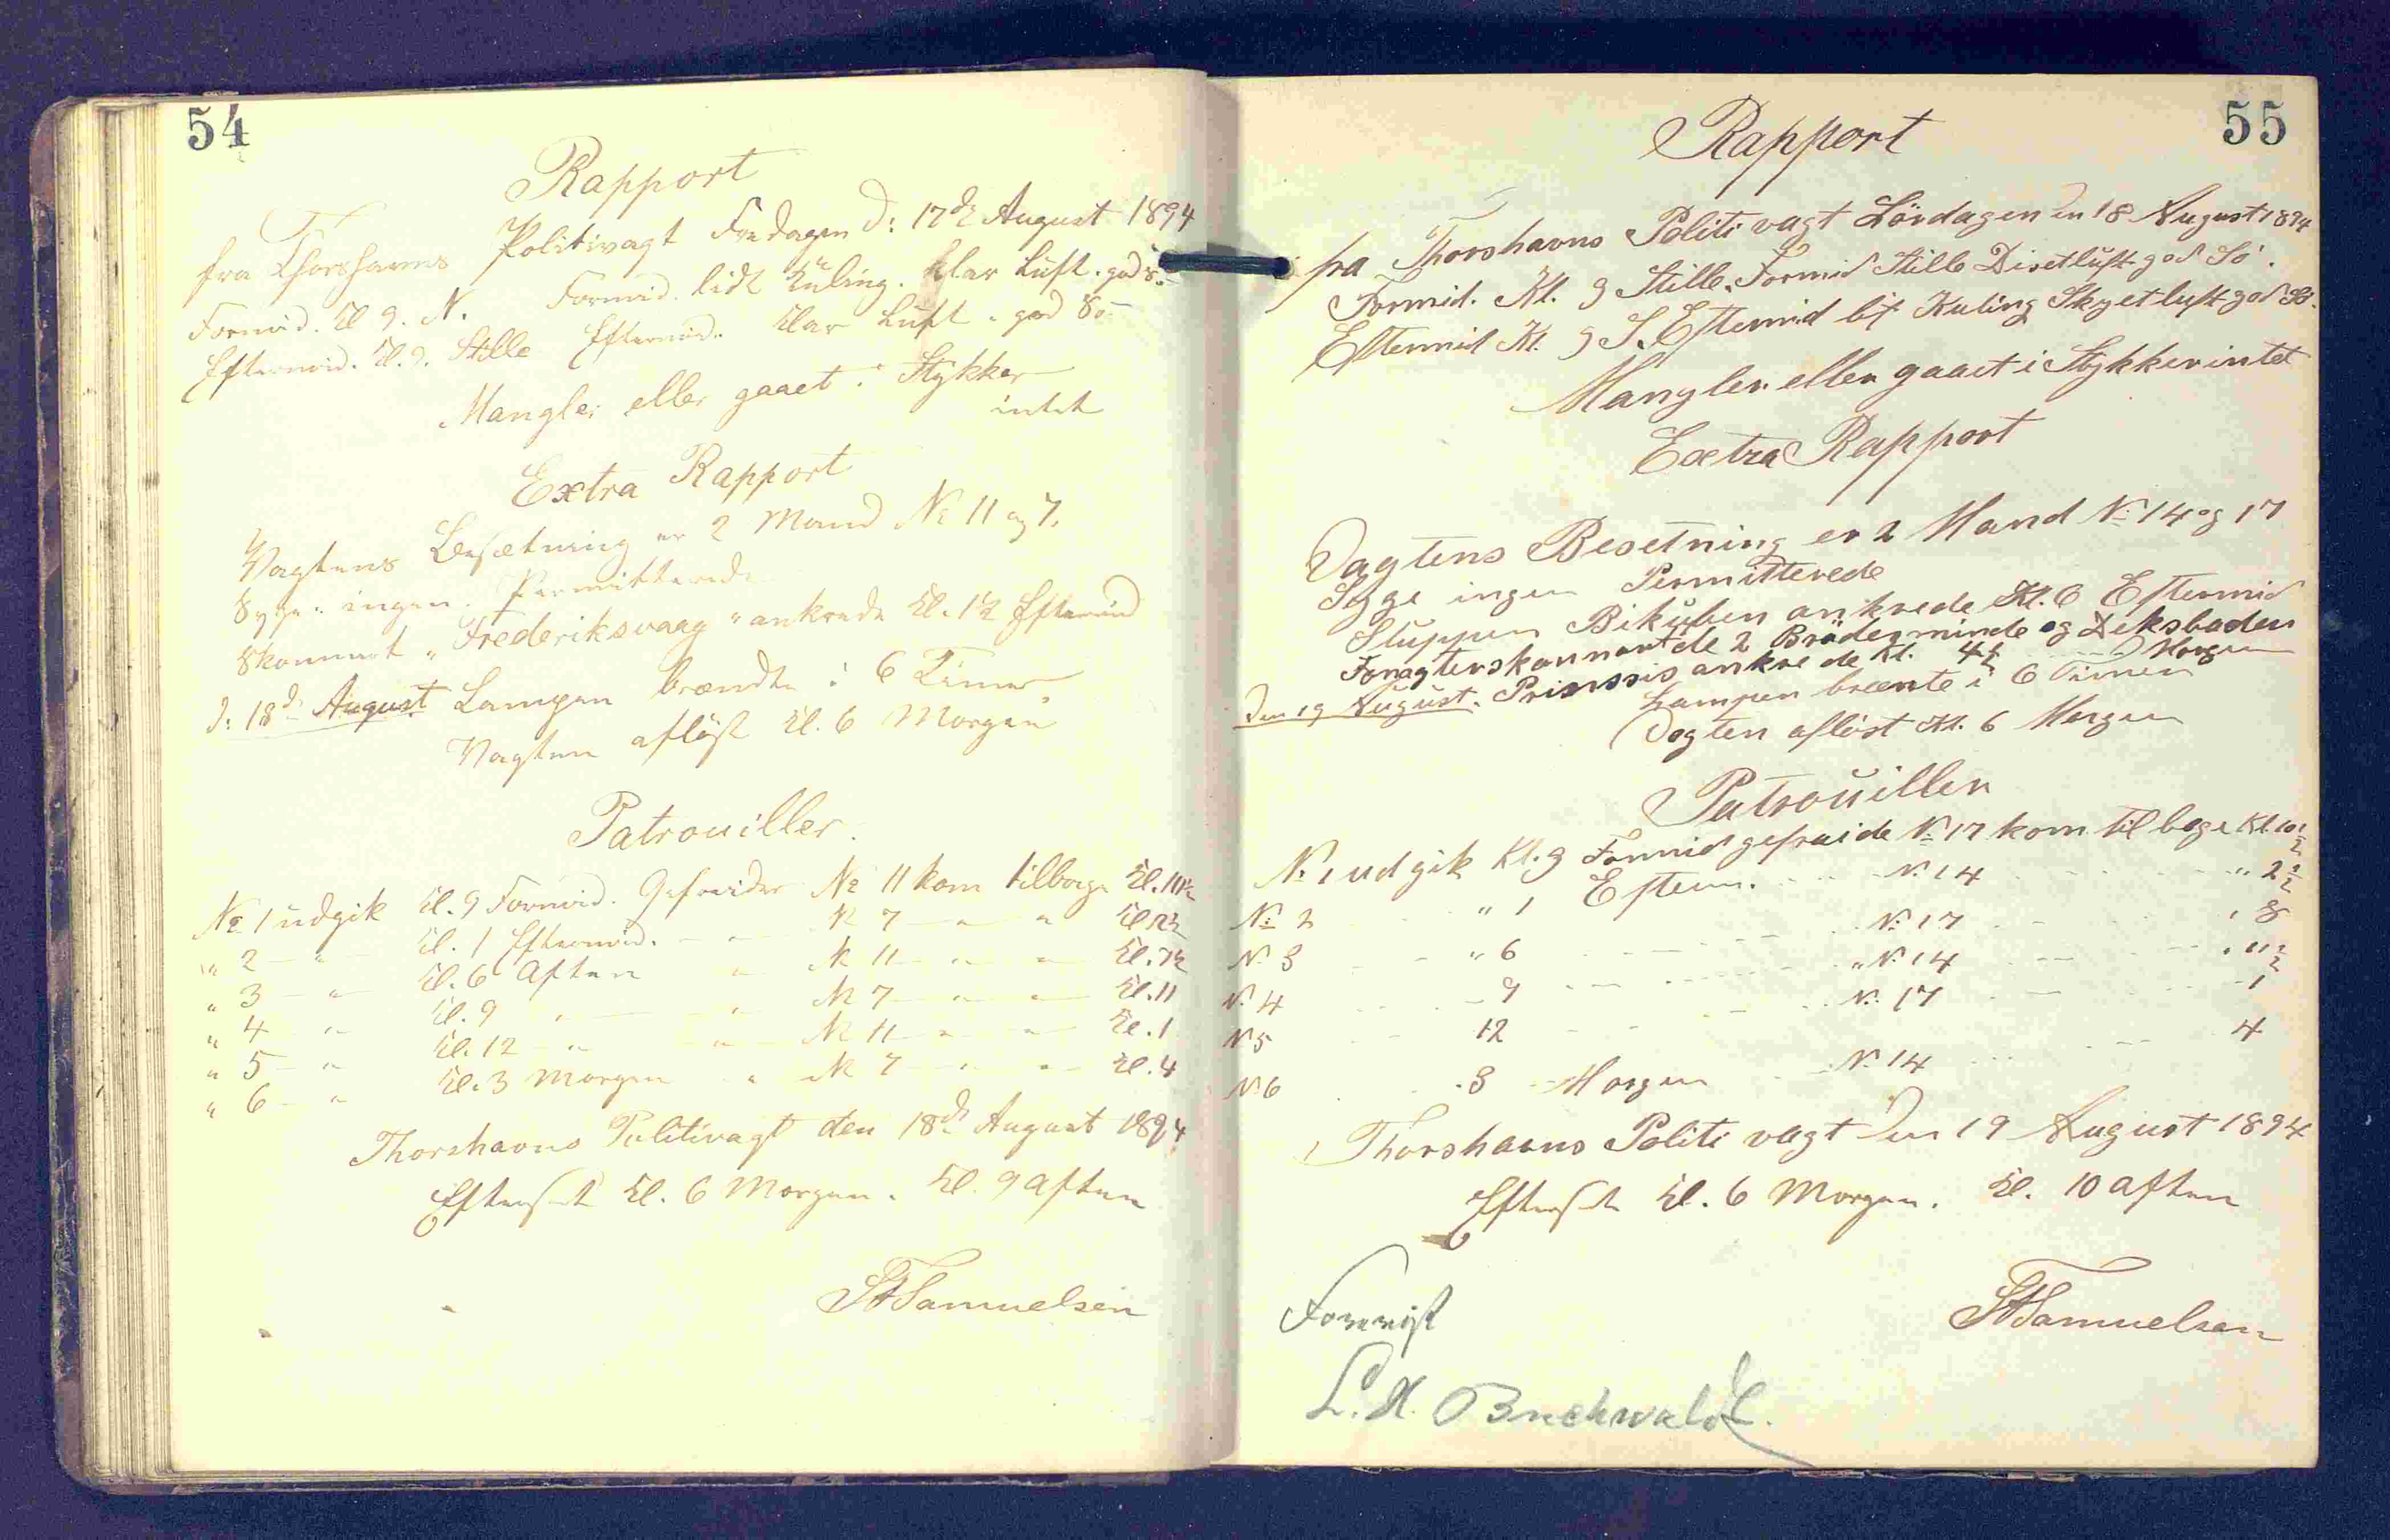 54
Rapport
fra Thorshavns Politivagt Fredagen d: 17de August 1894
Formid. Kl 9. N. Formid. lidt Kuling. klar Luft. god Sö.
Eftermid. Kl. 9. Stille Eftermid. klar Luft. god Sö
Mangler eller gaaet i Stykker
intet
Extra Rapport
Vagtens Besætning er 2 Mand № 11 og 7.
Syge ingen. Permitterede
Skonnert „Frederiksvaag“ ankrede Kl. 1½ Eftermid
d: 18de August Lampen brændte i 6 Timer.
Vagten aflöst Kl. 6 Morgen
Patrouiller.
№ 1 udgik Kl. 9 Formid. Gefreider № 11 kom tilbage Kl. 10½
" 2 — " — Kl. 1 Eftermid. — " — № 7 — " — " Kl 2½
" 3 — " — Kl. 6 Aften " № 11 — " — " — Kl. 7½
" 4 — " Kl. 9 " — " № 7 — " — " — Kl. 11
" 5 — " Kl. 12 — " — " — № 11 — " — " — Kl. 1
" 6 — " Kl. 3 Morgen " № 7 — " — " — Kl. 4
Thorshavns Politivagt den 18de August 1894
Efterset Kl. 6 Morgen. Kl. 9 Aften
Samuelsen
55
Rapport
fra Thorshavns Politi vagt Lördagen den 18 August 1894
Formid. Kl. 9 Stille. Formid Stille Disetluft god Sö.
Eftermid Kl. 9 S. Eftermid löj Kuling Skyetluft god Sö.
Mangler eller gaaet i Stykker intet
Extra Rapport
Vagtens Besetning er 2 Mand № 14 og 17
Syge ingen Permitterede
Sluppen Bikuben ankrede Kl. 6 Eftermid
2 Brödreminde og
Den 19 August. Prinssis ankrede Kl. 4½ Morgen
Lampen brænte i 6 Timer
Vagten aflöst Kl. 6 Morgen
Patrouiller
№ 1 udgik Kl. 9 Formid gefraide № 17 kom til bage Kl. 10½
№ 2 " 1 Efterm. № 14 " 2½
№ 3 " 6 № 17 " 8
№ 4 9 " № 14 " 11½
№ 5 12 № 17 1
№ 6 3 Morgen № 14 4
Thorshavns Politi vagt den 19 August 1894
Efterset Kl. 6 Morgen. Kl. 10 Aften
Samuelsen
Forevist
L. H. Buchwaldt.